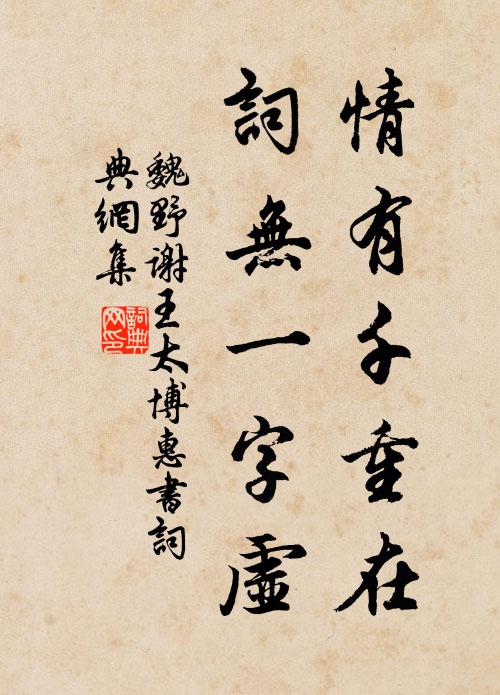 情有千重在
詞無一字虛
魏野謝王太博惠書詞
典網集
詞典
网印